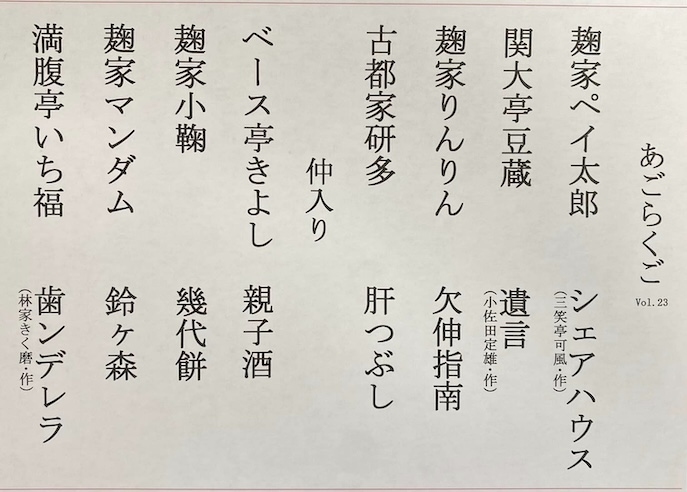 あごらくご Vol.23
麹家ペイ太郎 シェアハウス
(三笑亭可風・作)
関大亭豆蔵 遺言
(小佐田定雄・作)
麹家りんりん 欠伸指南
古都家研多 肝つぶし
仲入り
ベース亭きよし 親子酒
麹家小鞠 幾代餅
麹家マンダム 鈴ヶ森
満腹亭いち福 歯ンデレラ
(林家きく磨・作)